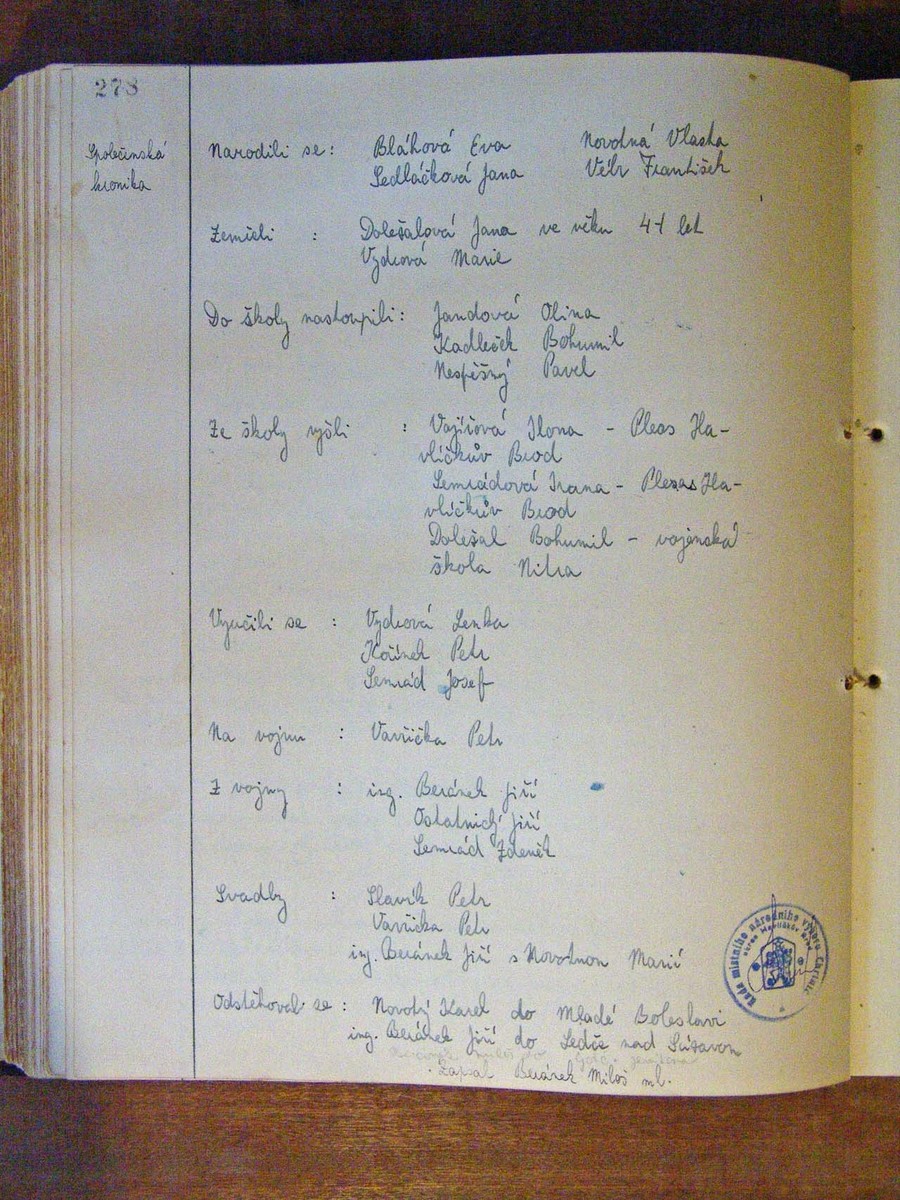 278
Společenská
kronika
Narodili se: Bláhová Eva Novotná Vlasta
Sedláčková Jana Vébr František
Zemřeli : Doležalová Jana ve věku 41 let
Vydrová Marie
Do školy nastoupili: Jandová Olina
Kadleček Bohumil
Nespěšný Pavel
Ze školy vyšli : Ilona - Pleas Ha-
vlíčkův Brod
Semrádová Ivana - Pleas Ha-
vlíčkův Brod
Doležal Bohumil - vojenská
škola Nitra
Vyučili se : Vydrová Lenka
Kořínek Petr
Semrád Josef
Na vojnu : Vavřička Petr
Z vojny : ing. Beránek Jiří
Ostatnický Jiří
Semrád Zdeněk
Svadby : Slavík Petr
Vavřička Petr
ing. Beránek Jiří s Novotnou Marií
Odstěhoval se: Novotý Karel do Mladé Boleslavi
ing. Beránek Jiří do Ledče nad Sázavou
Zapsal Beránek Miloš ml.
Rada místního národního výboru
okres Havlíčkův Brod